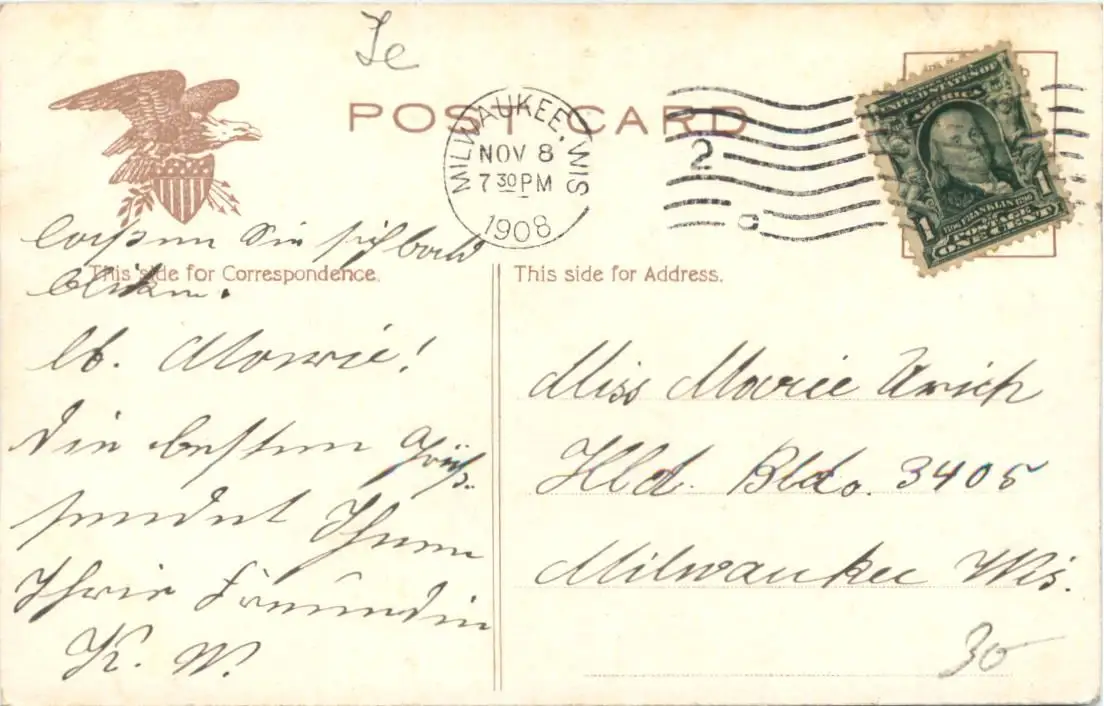 Je
POST CARD
MILWAUKEE, WIS
NOV 8
7 30 PM
1908
2
C
UNITED STATES OF
AMERICA
1 1
FRANKLIN
POSTAGE
ONE CENT
lassen Sie sich bald
blicken.
This side for Correspondence.
This side for Address.
lb. Marie!
Die besten Grüße
sendet Ihnen
Ihre Freundin
K. W.
Miss Marie Urich
Hld. Bldo. 3405
Milwaukee Wis.
30